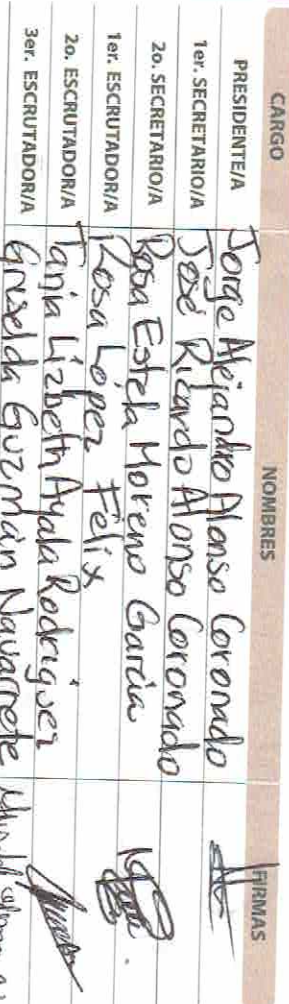 CARGO NOMBRES FIRMAS
PRESIDENTE/A Jorge Alejandro Alonso Coronado
1er. SECRETARIO/A José Ricardo Alonso Coronado
2o. SECRETARIO/A Rosa Estela Moreno García
1er. ESCRUTADOR/A Rosa López Felix
2o. ESCRUTADOR/A Tania Lizbeth Ayala Rodriguez
3er. ESCRUTADOR/A Griselda Guzmán Navarrete